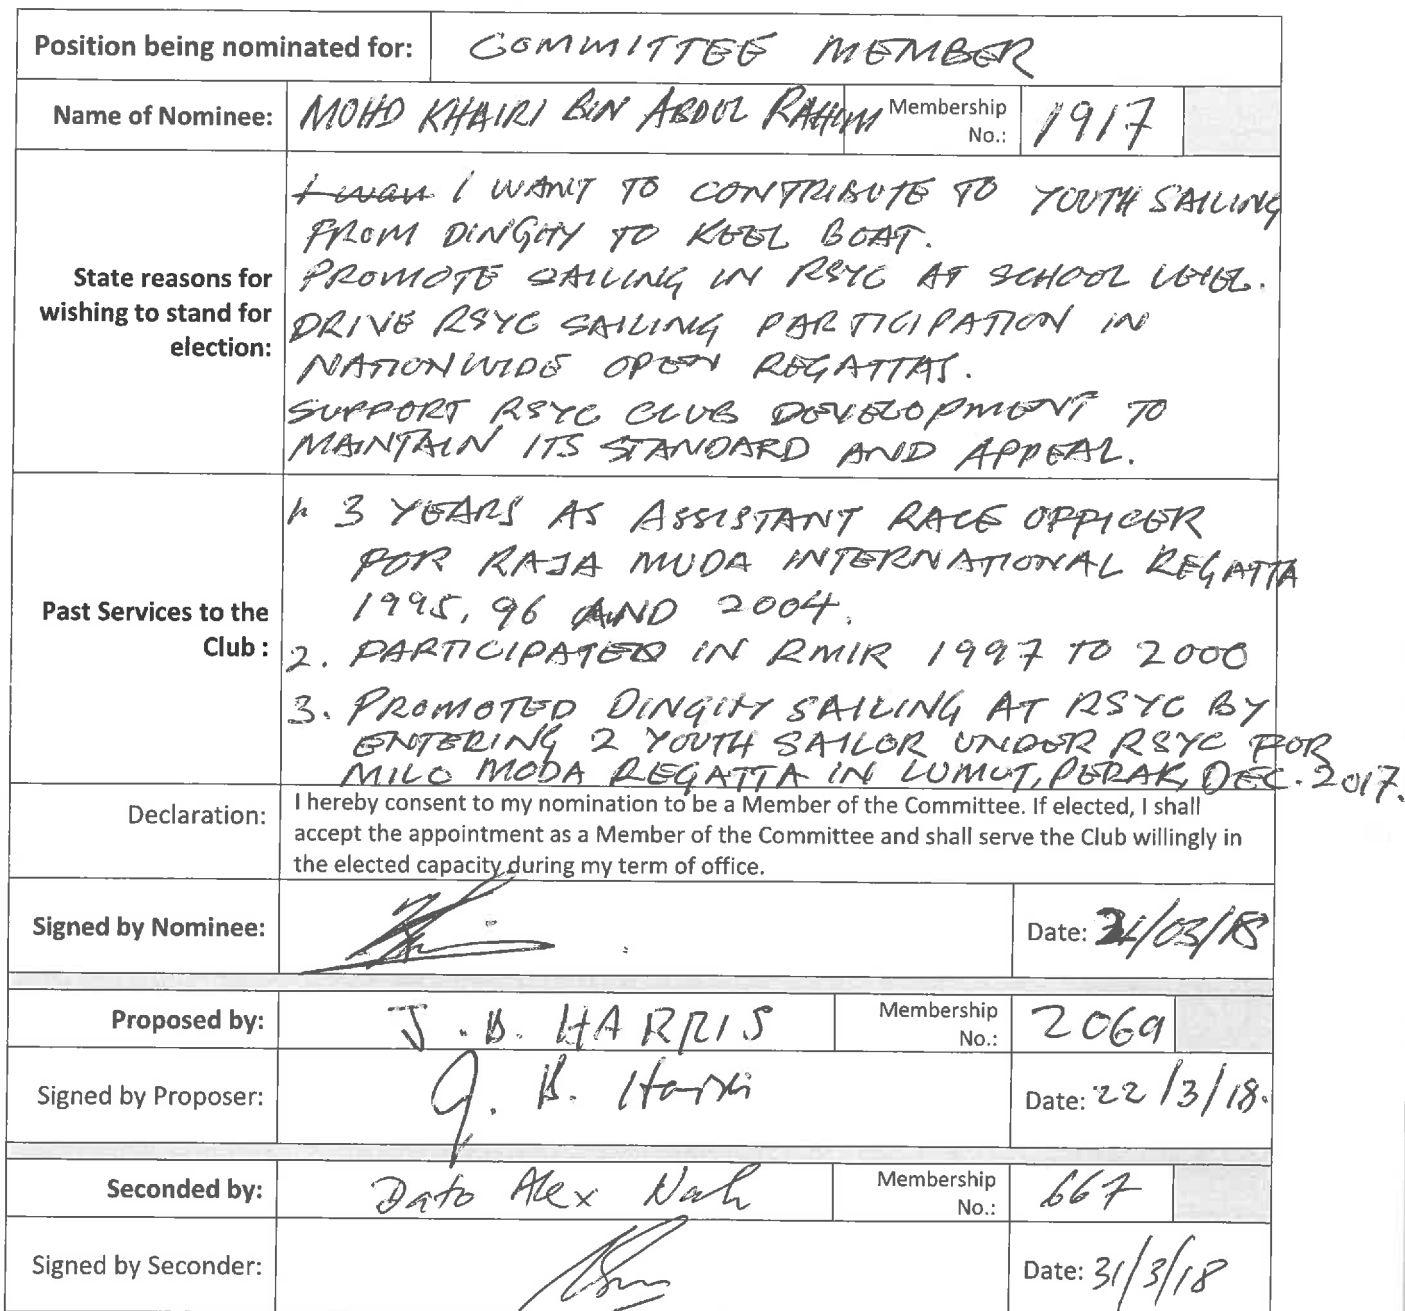 Position being nominated for: COMMITTEE MEMBER
Name of Nominee: MOHD KHAIRI BIN ABDUL RAHIM Membership No.: 1917
I WANT TO CONTRIBUTE TO YOUTH SAILING
FROM DINGHY TO KEEL BOAT.
State reasons for wishing to stand for election:
PROMOTE SAILING IN RSYC AT SCHOOL LEVEL.
DRIVE RSYC SAILING PARTICIPATION IN
NATIONWIDE OPEN REGATTAS.
SUPPORT RSYC CLUB DEVELOPMENT TO
MAINTAIN ITS STANDARD AND APPEAL.
Past Services to the Club :
1. 3 YEARS AS ASSISTANT RACE OFFICER
FOR RAJA MUDA INTERNATIONAL REGATTA
1995, 96 AND 2004.
2. PARTICIPATED IN RMIR 1997 TO 2000
3. PROMOTED DINGHY SAILING AT RSYC BY
ENTERING 2 YOUTH SAILOR UNDER RSYC FOR
MILO MODA REGATTA IN LUMUT, PERAK, DEC. 2017.
Declaration: I hereby consent to my nomination to be a Member of the Committee. If elected, I shall
accept the appointment as a Member of the Committee and shall serve the Club willingly in
the elected capacity during my term of office.
Signed by Nominee: Date: /03/18
Proposed by: J. B. HARRIS Membership No.: 2069
Signed by Proposer: J. B. Harris Date: 22/3/18.
Seconded by: Dato Alex Nah Membership No.: 667
Signed by Seconder: Date: 31/3/18